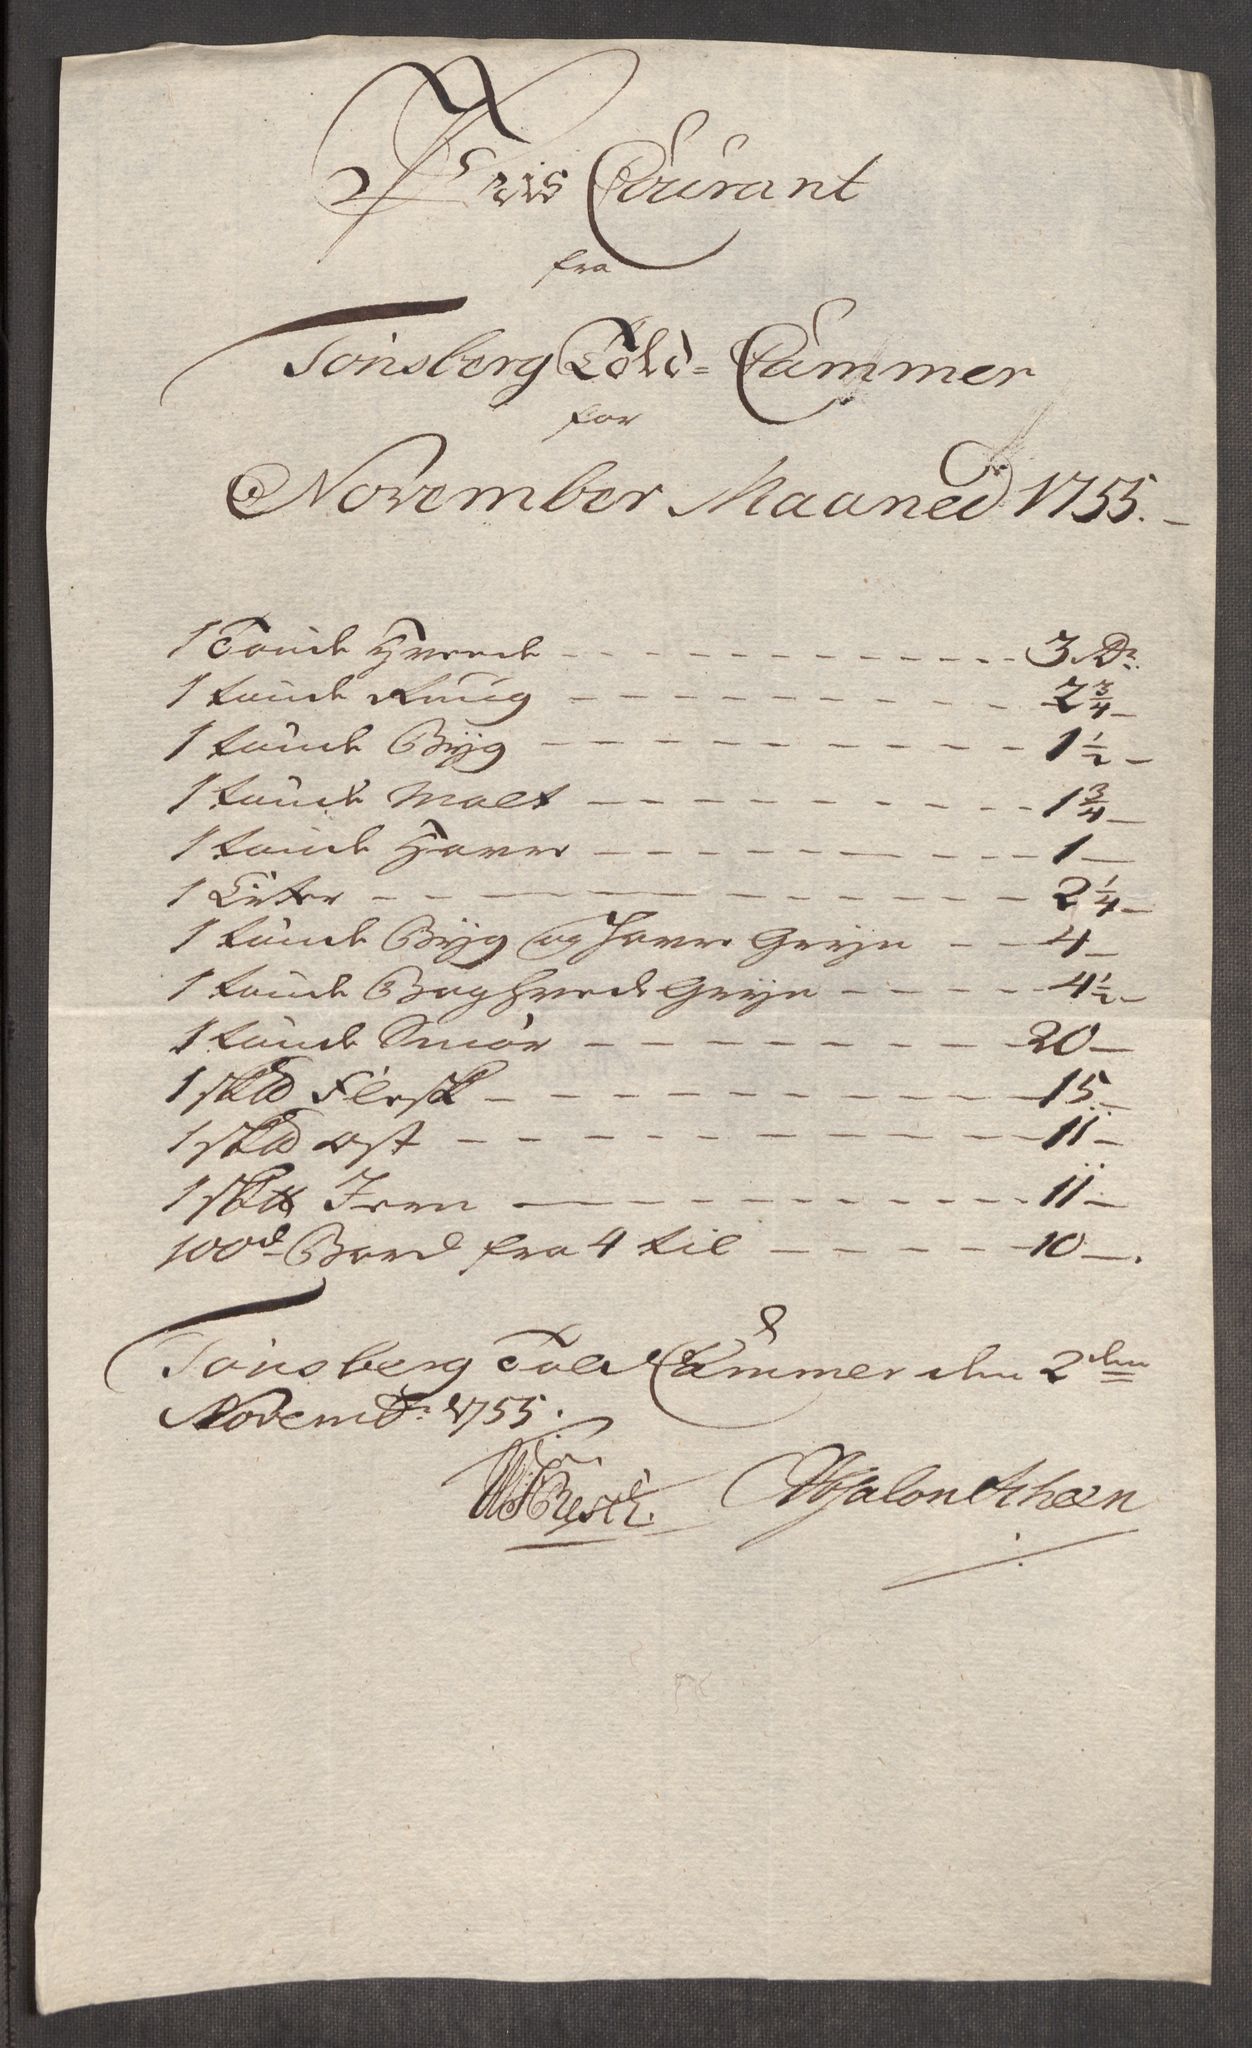 Pris Courant
fra
Tønsberg Told=Cammer
for
November Maaned 1755.-
1 Tønde Hvede - - - 3 Dr.
1 tønde Rüug - - - 2 3/4 -
1 tønde Byg - - - 1 1/2 -
1 tønde Malt - - - 1 3/4 -
1 tønde Havre - - - 1 -
1 Erter - - - 2 1/4 -
1 tønde Byg og Havre Gryn - - 4 -
1 tønde Boghvede Gryn - - - 4 1/2 -
1 tønde Smør - - - 20 -
1 sk℔ Flesk - - - 15 -
1 sk℔ ost - - - 11 -
1 sk℔ Jern - - - 11 -
100d Bord fra 4 til - - - 10 -.
Tønsberg Told Cammer den 2den
Novembr: 1755.